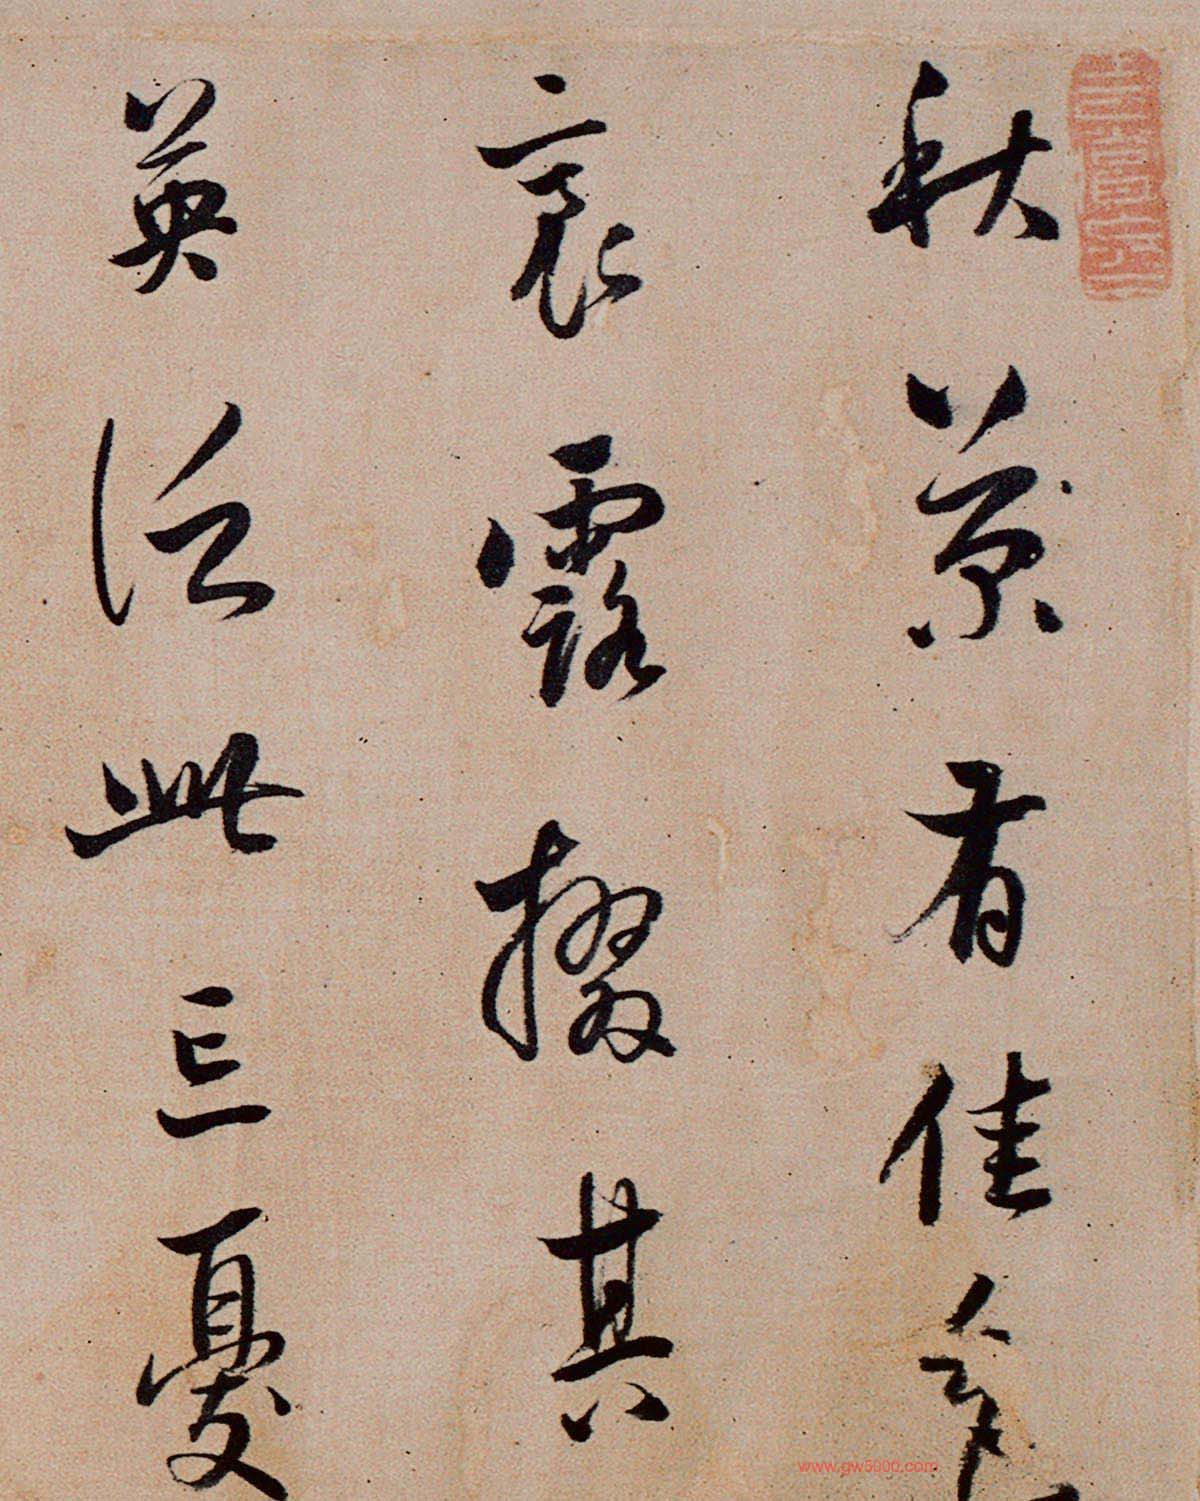 秋菊有佳色
裛露掇其
英泛此忘憂
www.gw5000.com